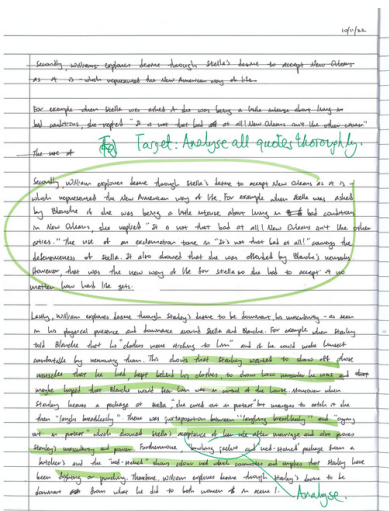 10/11/22
Secondly, Williams explores desire through Stella's desire to accept New Orleans
as it is - which represented the New American way of life.
For example when Stella was asked if she was being a little intense about living in
bad conditions, she replied "It is not that bad at all! New Orleans isn't like other cities"
The use of
Target: Analyse all quotes thoroughly.
Secondly, William explores desire through Stella's desire to accept New Orleans as it is -
which represented the New American way of life. For example when Stella was asked
by Blanche if she was being a little intense about living in bad conditions
in New Orleans, she replied "It is not that bad at all! New Orleans isn't like other
cities." The use of an exclamation tone in "It's not that bad at all!" conveys the
defensiveness of Stella. It also showed that she was offended by Blanche's remarks.
However, that was the new way of life for Stella so she had to accept it no
matter how hard life gets.
Lastly, William explores desire through Stanley's desire to be dominant, his masculinity - as seen
in his physical presence and dominance around Stella and Blanche. For example when Stanley
told Blanche that his "clothes were sticking to him" and if he could make himself
comfortable by removing them. This shows that Stanley wanted to show off those
muscles that he had kept behind his clothes to show how muscular he was and
maybe hoped that Blanche would see him was in control of the house. Moreover when
Stanley heaves a package at Stella "she cried out in protest" but manages to catch it she
then "laughs breathlessly". There was juxtaposition between "laughing breathlessly" and "crying
out in protest" which showed Stella's acceptance of him after marriage and also shows
Stanley's masculinity and power. Furthermore "bowling jacket and red-stained package from a
butcher's" and the "red-stained" shows colour red which connotes and implies that Stanley have
been fighting or punching. Therefore, William explores desire through Stanley's desire to be
dominant from what he did to both women in scene 1.
Analyse.